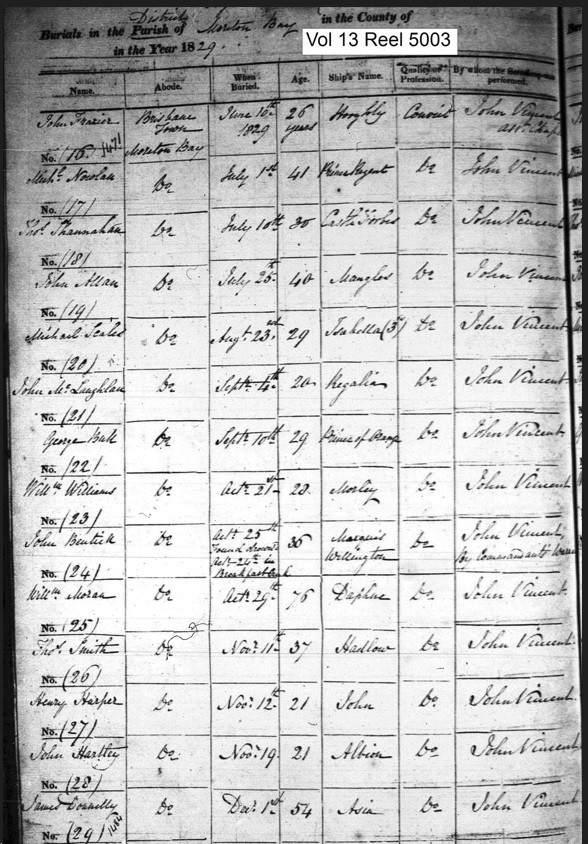 District
Burials in the Parish of Moreton Bay in the County of
in the Year 1829.
Vol 13 Reel 5003
Name. Abode. When Buried. Age. Ship's Name. Quality or Profession. By whom the Ceremony was performed.
John Frazier Brisbane Town Moreton Bay June 10th 1829 26 years Hooghly Convict John Vincent asst. Chap
No. (16)
Michl. Nowlan Do July 1st 41 Prince Regent Do John Vincent
No. (17)
Thos. Shannahan Do July 10th 30 Castle Forbes Do John Vincent
No. (18)
John Allan Do July 25th 40 Mangles Do John Vincent
No. (19)
Michael Scales Do Augt. 23rd 29 Isabella (3rd) Do John Vincent
No. (20)
John McLaughlan Do Septr. 4th 20 Regalia Do John Vincent
No. (21)
George Bull Do Septr. 10th 29 Do John Vincent
No. (22)
Willm. Williams Do Octr. 21st 28 Morley Do John Vincent
No. (23)
John Do Octr. 25th Found drowned Octr. 24th in Breakfast Creek 36 Marquis Wellington Do John Vincent By Commandants
No. (24)
Willm. Moran Do Octr. 29th 76 Daphne Do John Vincent
No. (25)
Thos. Smith Do Novr. 11th 37 Hadlow Do John Vincent
No. (26)
Henry Harper Do Novr. 12th 21 John Do John Vincent
No. (27)
John Hartley Do Novr. 19 21 Albion Do John Vincent
No. (28)
James Donnelly Do Decr. 1st 54 Asia Do John Vincent
No. (29)